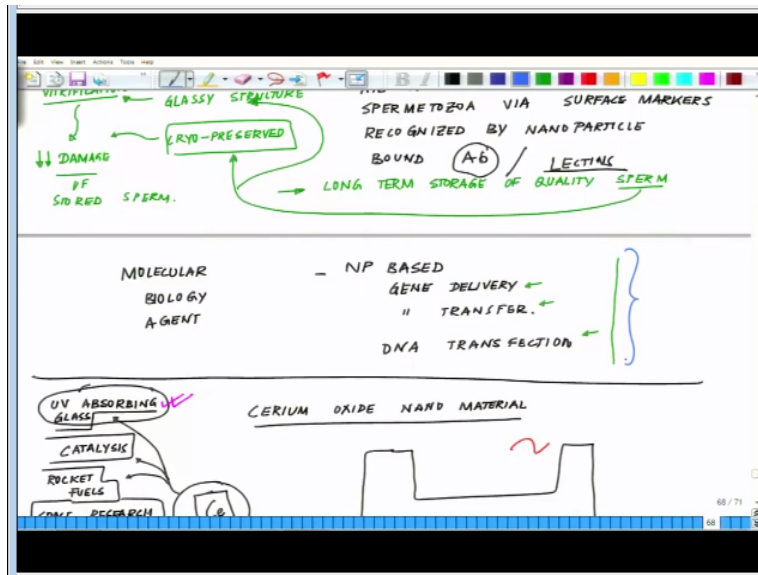 File Edit View Insert Actions Tools Help
B I
VITRIFICATION
GLASSY STRUCTURE
CRYO-PRESERVED
↓↓ DAMAGE
OF
STORED SPERM.
SPERMETOZOA VIA SURFACE MARKERS
RECOGNIZED BY NANOPARTICLE
BOUND Ab / LECTINS
→ LONG TERM STORAGE OF QUALITY SPERM
MOLECULAR
BIOLOGY
AGENT
- NP BASED
GENE DELIVERY ←
" TRANSFER. ←
DNA TRANSFECTION ←
UV ABSORBING
GLASS
CATALYSIS
ROCKET
FUELS
SPACE RESEARCH
Ce
CERIUM OXIDE NANO MATERIAL
68 / 71
68